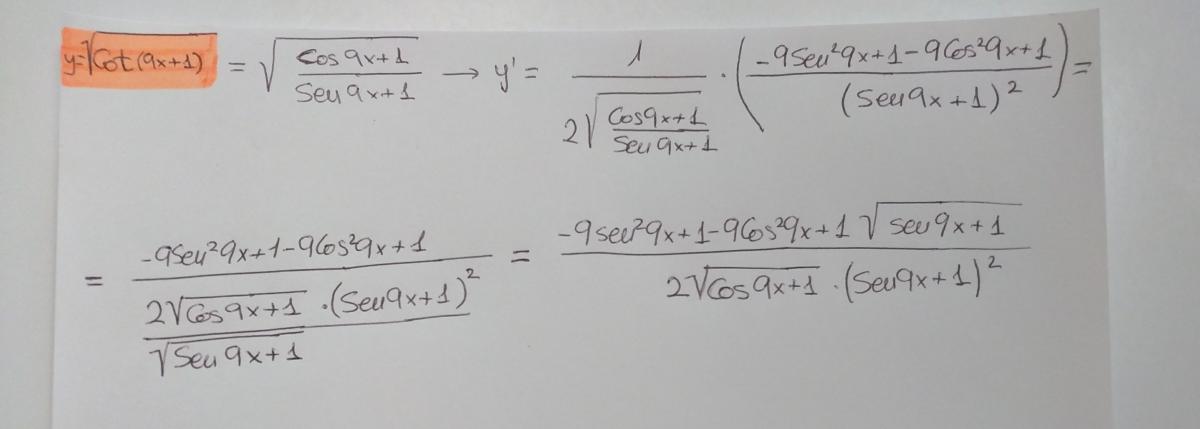 y=√cot(9x+1) = √(Cos 9x+1 / Sen 9x+1) → y' = 1 / 2√(Cos9x+1 / Sen 9x+1) · (-9Sen²9x+1-9Cos²9x+1 / (Sen9x+1)²) =
= -9Sen²9x+1-9Cos²9x+1 / (2√Cos9x+1 · (Sen9x+1)² / √Sen 9x+1) = -9sen²9x+1-9Cos²9x+1 √sen9x+1 / 2√Cos 9x+1 · (Sen9x+1)²